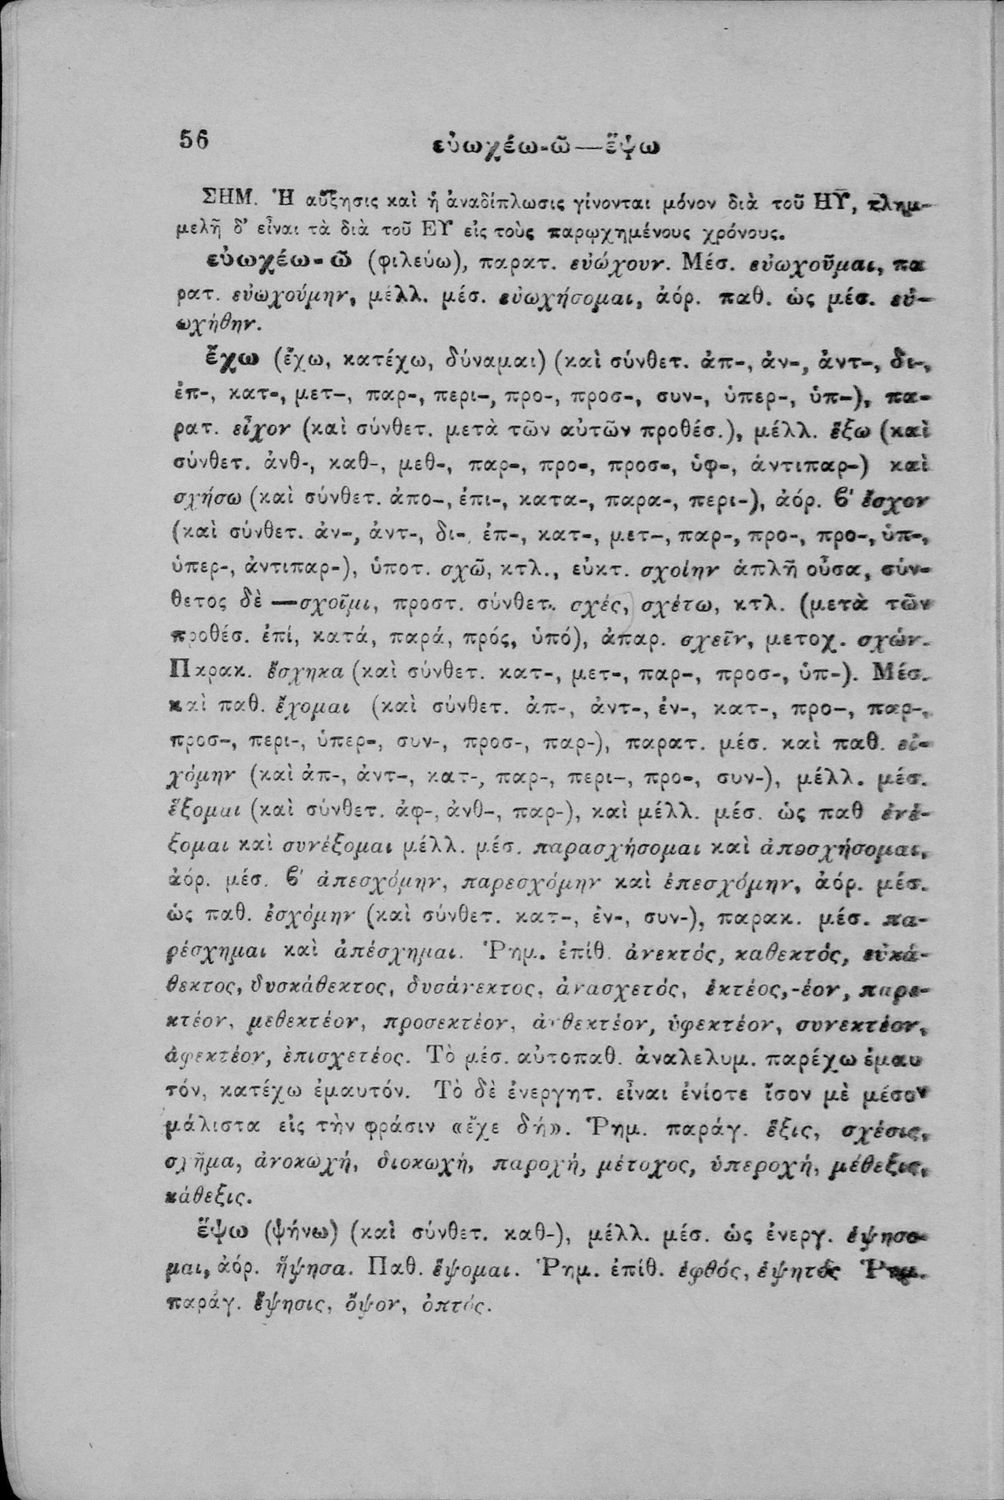 56
εὐωχέω-ῶ—ἕψω
ΣΗΜ. Ἡ αὔξησις καὶ ἡ ἀναδίπλωσις γίνονται μόνον διὰ τοῦ ΗΥ, πλημ-
μελῆ δ’ εἶναι τὰ διὰ τοῦ ΕΥ εἰς τοὺς παρῳχημένους χρόνους.
εὐωχέω-ῶ (φιλεύω), παρατ. εὐώχουν. Μέσ. εὐωχοῦμαι, πα
ρατ. εὐωχούμην, μέλλ. μέσ. εὐωχήσομαι, ἀόρ. παθ. ὡς μέσ. εὐ-
ωχήθην.
ἔχω (ἔχω, κατέχω, δύναμαι) (καὶ σύνθετ. ἀπ-, ἀν-, ἀντ-, δι-,
ἐπ-, κατ-, μετ-, παρ-, περι-, προ-, προσ-, συν-, ὑπερ-, ὑπ-), πα-
ρατ. εἶχον (καὶ σύνθετ. μετὰ τῶν αὐτῶν προθέσ.), μέλλ. ἕξω (καὶ
σύνθετ. ἀνθ-, καθ-, μεθ-, παρ-, προ-, προσ-, ὑφ-, ἀντιπαρ-) καὶ
σχήσω (καὶ σύνθετ. ἀπο-, ἐπι-, κατα-, παρα-, περι-), ἀόρ. ϐ′ ἔσχον
(καὶ σύνθετ. ἀν-, ἀντ-, δι-, ἐπ-, κατ-, μετ-, παρ-, προ-, προ-, ὑπ-,
ὑπερ-, ἀντιπαρ-), ὑποτ. σχῶ, κτλ., εὐκτ. σχοίην ἁπλῆ οὖσα, σύν-
θετος δὲ —σχοῖμι, προστ. σύνθετ. σχές, σχέτω, κτλ. (μετὰ τῶν
προθέσ. ἐπί, κατά, παρά, πρός, ὑπό), ἀπαρ. σχεῖν, μετοχ. σχών.
Παρακ. ἔσχηκα (καὶ σύνθετ. κατ-, μετ-, παρ-, προσ-, ὑπ-). Μέσ.
καὶ παθ. ἔχομαι (καὶ σύνθετ. ἀπ-, ἀντ-, ἐν-, κατ-, προ-, παρ-,
προσ-, περι-, ὑπερ-, συν-, προσ-, παρ-), παρατ. μέσ. καὶ παθ. εἰ-
χόμην (καὶ ἀπ-, ἀντ-, κατ-, παρ-, περι-, προ-, συν-), μέλλ. μέσ.
ἕξομαι (καὶ σύνθετ. ἀφ-, ἀνθ-, παρ-), καὶ μέλλ. μέσ. ὡς παθ ἐνέ-
ξομαι καὶ συνέξομαι μέλλ. μέσ. παρασχήσομαι καὶ ἀποσχήσομαι,
ἀόρ. μέσ. ϐ′ ἀπεσχόμην, παρεσχόμην καὶ ἐπεσχόμην, ἀόρ. μέσ.
ὡς παθ. ἐσχόμην (καὶ σύνθετ. κατ-, ἐν-, συν-), παρακ. μέσ. πα-
ρέσχημαι καὶ ἀπέσχημαι. Ῥημ. ἐπίθ. ἀνεκτός, καθεκτός, εὐκά-
θεκτος, δυσκάθεκτος, δυσάνεκτος, ἀνασχετός, ἑκτέος,-έον, παρε-
κτέον, μεθεκτέον, προσεκτέον, ἀνθεκτέον, ὑφεκτέον, συνεκτέον,
ἀφεκτέον, ἐπισχετέος. Τὸ μέσ. αὐτοπαθ. ἀναλελυμ. παρέχω ἐμαυ
τόν, κατέχω ἐμαυτόν. Τὸ δὲ ἐνεργητ. εἶναι ἐνίοτε ἴσον μὲ μέσον
μάλιστα εἰς τὴν φράσιν «ἔχε δή». Ῥημ. παράγ. ἕξις, σχέσις,
σχῆμα, ἀνοκωχή, διοκωχή, παροχή, μέτοχος, ὑπεροχή, μέθεξις,
κάθεξις.
ἕψω (ψήνω) (καὶ σύνθετ. καθ-), μέλλ. μέσ. ὡς ἐνεργ. ἑψήσο-
μαι, ἀόρ. ἥψησα. Παθ. ἕψομαι. Ῥημ. ἐπίθ. ἑφθός, ἑψητός Ῥημ.
παράγ. ἕψησις, ὄψον, ὀπτός.